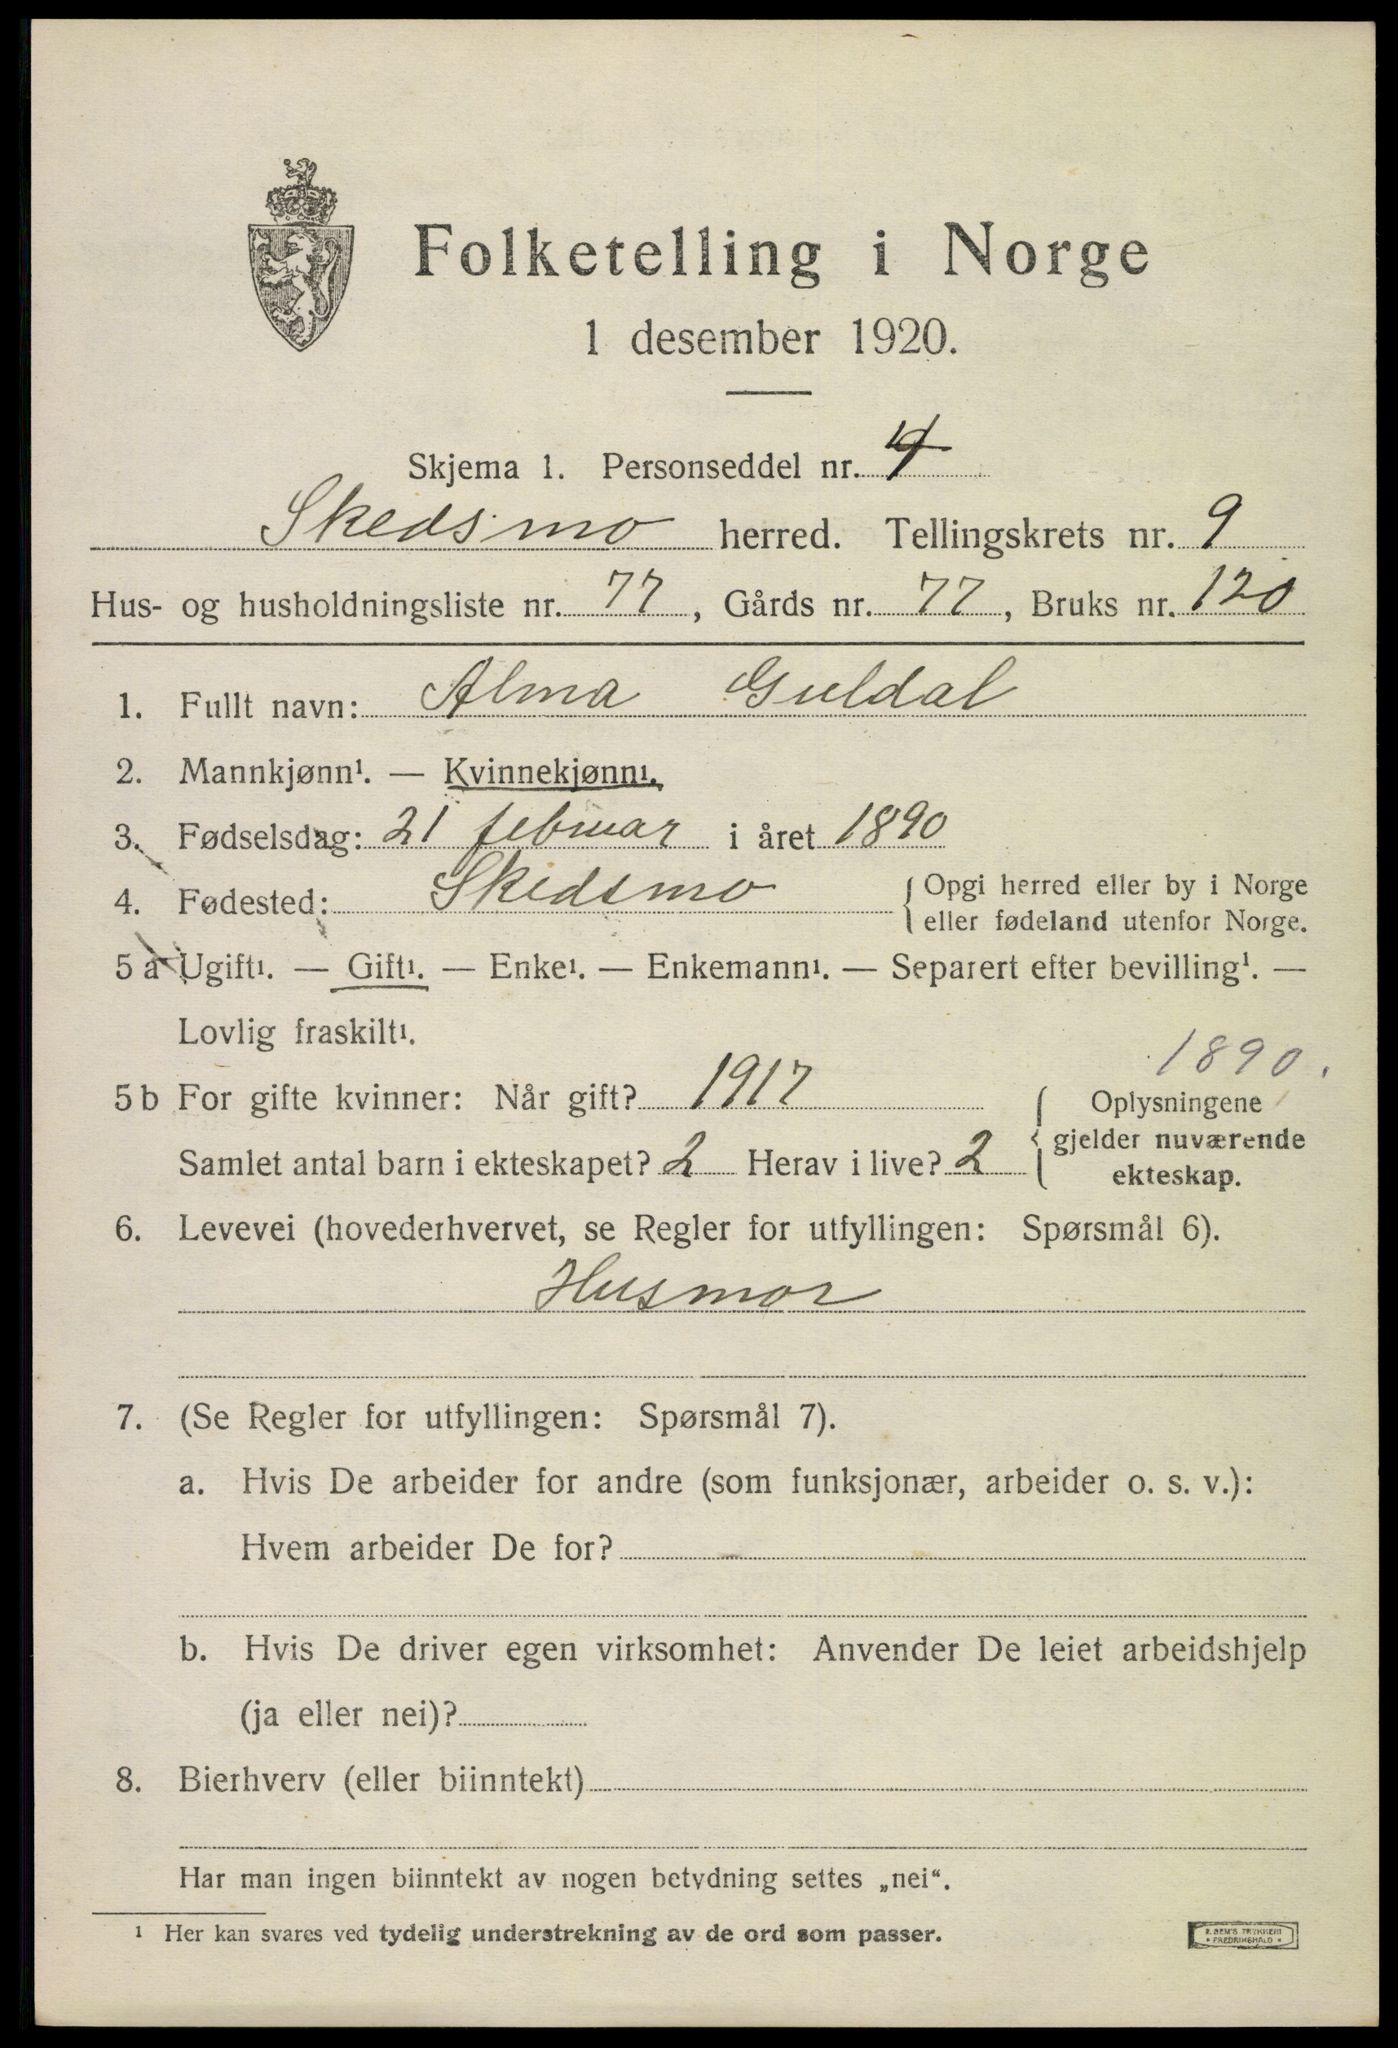 Folketelling i Norge
1 desember 1920.
Skjema 1. Personseddel nr. 4
Skedsmo herred. Tellingskrets nr. 9
Hus- og husholdningsliste nr. 77, Gårds nr. 77, Bruks nr. 120
1. Fullt navn: Alma Guldal
2. Mannkjønn¹. — Kvinnekjønn¹.
3. Fødselsdag: 21 februar i året 1890
4. Fødested: Skedsmo { Opgi herred eller by i Norge
eller fødeland utenfor Norge.
5 a Ugift¹. — Gift¹. — Enke¹. — Enkemann¹. — Separert efter bevilling¹. —
Lovlig fraskilt¹.
1890.
5 b For gifte kvinner: Når gift? 1917 { Oplysningene
gjelder nuværende
Samlet antal barn i ekteskapet? 2 Herav i live? 2
ekteskap.
6. Levevei (hovederhvervet, se Regler for utfyllingen: Spørsmål 6).
Husmor
7. (Se Regler for utfyllingen: Spørsmål 7).
a. Hvis De arbeider for andre (som funksjonær, arbeider o. s. v.):
Hvem arbeider De for?
b. Hvis De driver egen virksomhet: Anvender De leiet arbeidshjelp
(ja eller nei)?
8. Bierhverv (eller biinntekt)
Har man ingen biinntekt av nogen betydning settes „nei“.
¹ Her kan svares ved tydelig understrekning av de ord som passer.
TRYKKERI
FREDRIKSHALD